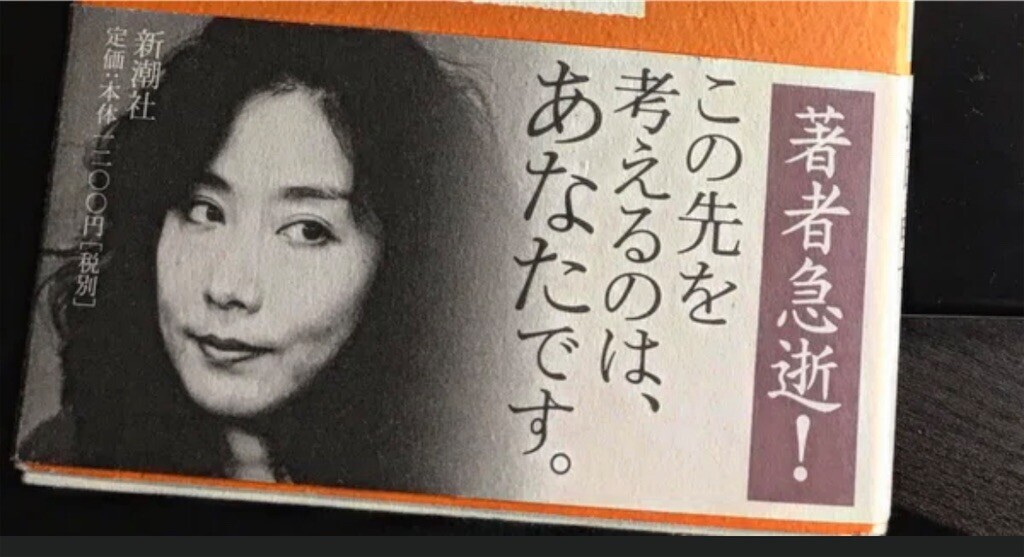 著者急逝!
この先を
考えるのは、
あなたです。
新潮社
定価:本体一二〇〇円[税別]